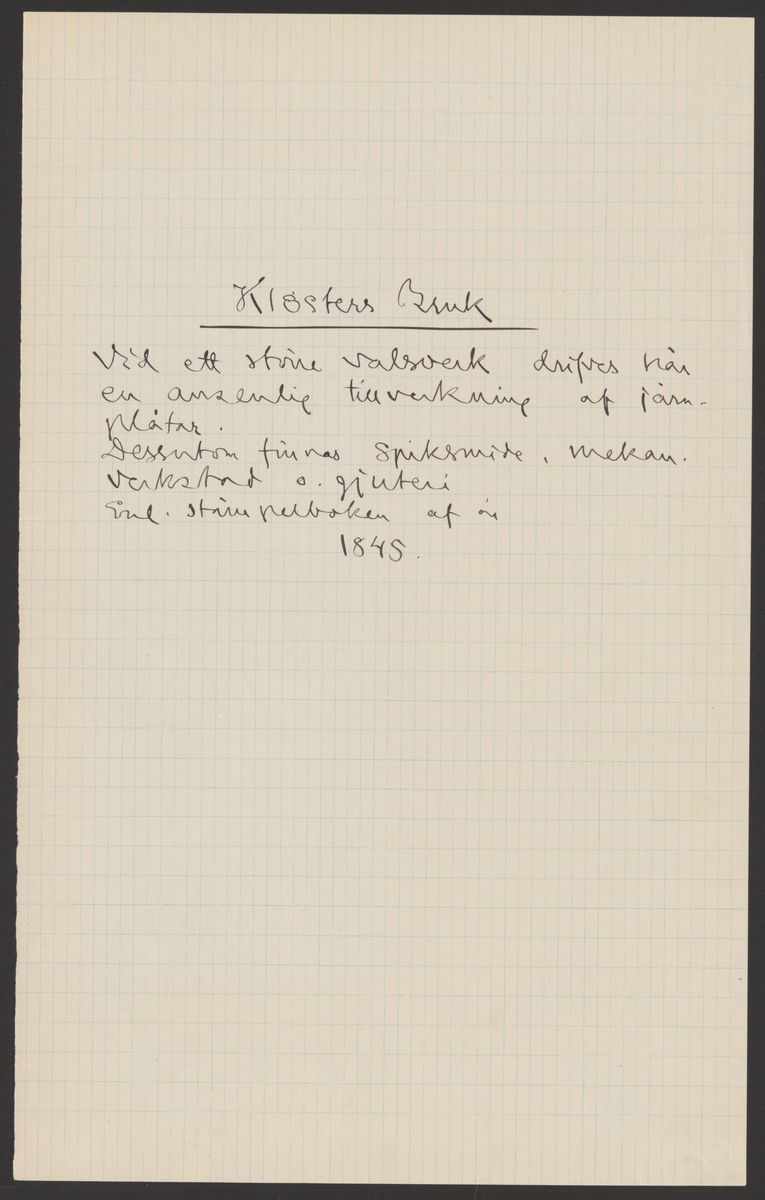 Klosters Bruk
Vid ett större valsverk drifves här
en ansenlig tillverkning af järn-
plåtar.
Dessutom finnas spiksmide, mekan.
verkstad o. gjuteri
Enl. stämpelboken af år
1845.